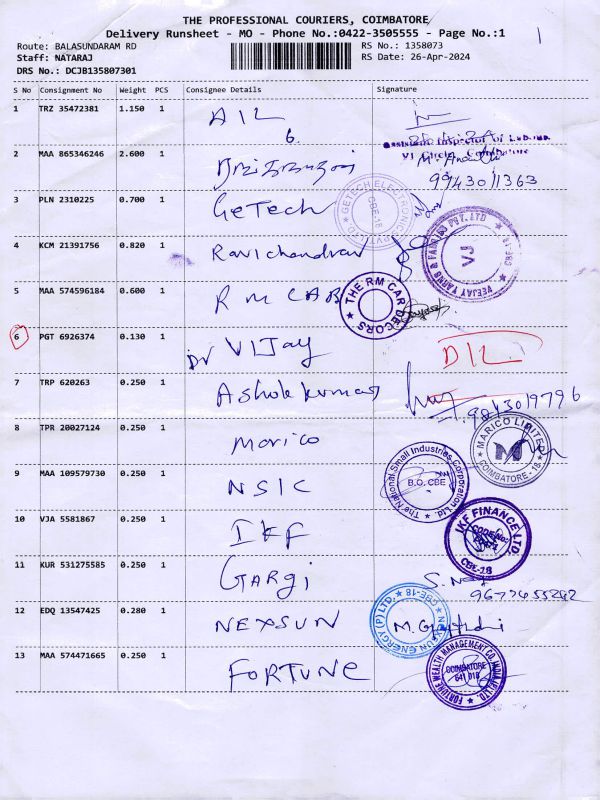 THE PROFESSIONAL COURIERS, COIMBATORE
Delivery Runsheet - MO - Phone No.:0422-3505555 - Page No.:1
Route: BALASUNDARAM RD
RS No.: 1358073
Staff: NATARAJ
RS Date: 26-Apr-2024
DRS No.: DCJB135807301
S No Consignment No Weight PCS Consignee Details Signature
1 TRZ 35472381 1.150 1 AIL
6.
Assistant Inspector of Labour
VI Circle, Coimbatore
2 MAA 865346246 2.600 1
9943011363
3 PLN 2310225 0.700 1 GeTech
GETECH ELECTRONICS PVT LTD
CBE-18
4 KCM 21391756 0.820 1 Ravichandran
VEEJAY YARNS & FABRICS PVT. LTD
VJ
5 MAA 574596184 0.600 1 RM CAB
THE RM CAR DECORS
6 PGT 6926374 0.130 1 Dr VIJay D/L
7 TRP 620263 0.250 1 Ashok kumar
9843019796
8 TPR 20027124 0.250 1 Marico
MARICO LIMITED
M
COIMBATORE - 18
9 MAA 109579730 0.250 1 NSIC
The National Small Industries Corporation Ltd.
B.O. CBE
10 VJA 5581867 0.250 1 IKF
IKF FINANCE LTD.
CODE No:
CBE-18
11 KUR 531275585 0.250 1 GARgi
9677455282
12 EDQ 13547425 0.280 1 NEXSUN
NEXSUN ENERGY (P) LTD.
CBE-18
13 MAA 574471665 0.250 1 FORTUNE
FORTUNE WEALTH MANAGEMENT CO. INDIA (P) LTD.
COIMBATORE
641 018